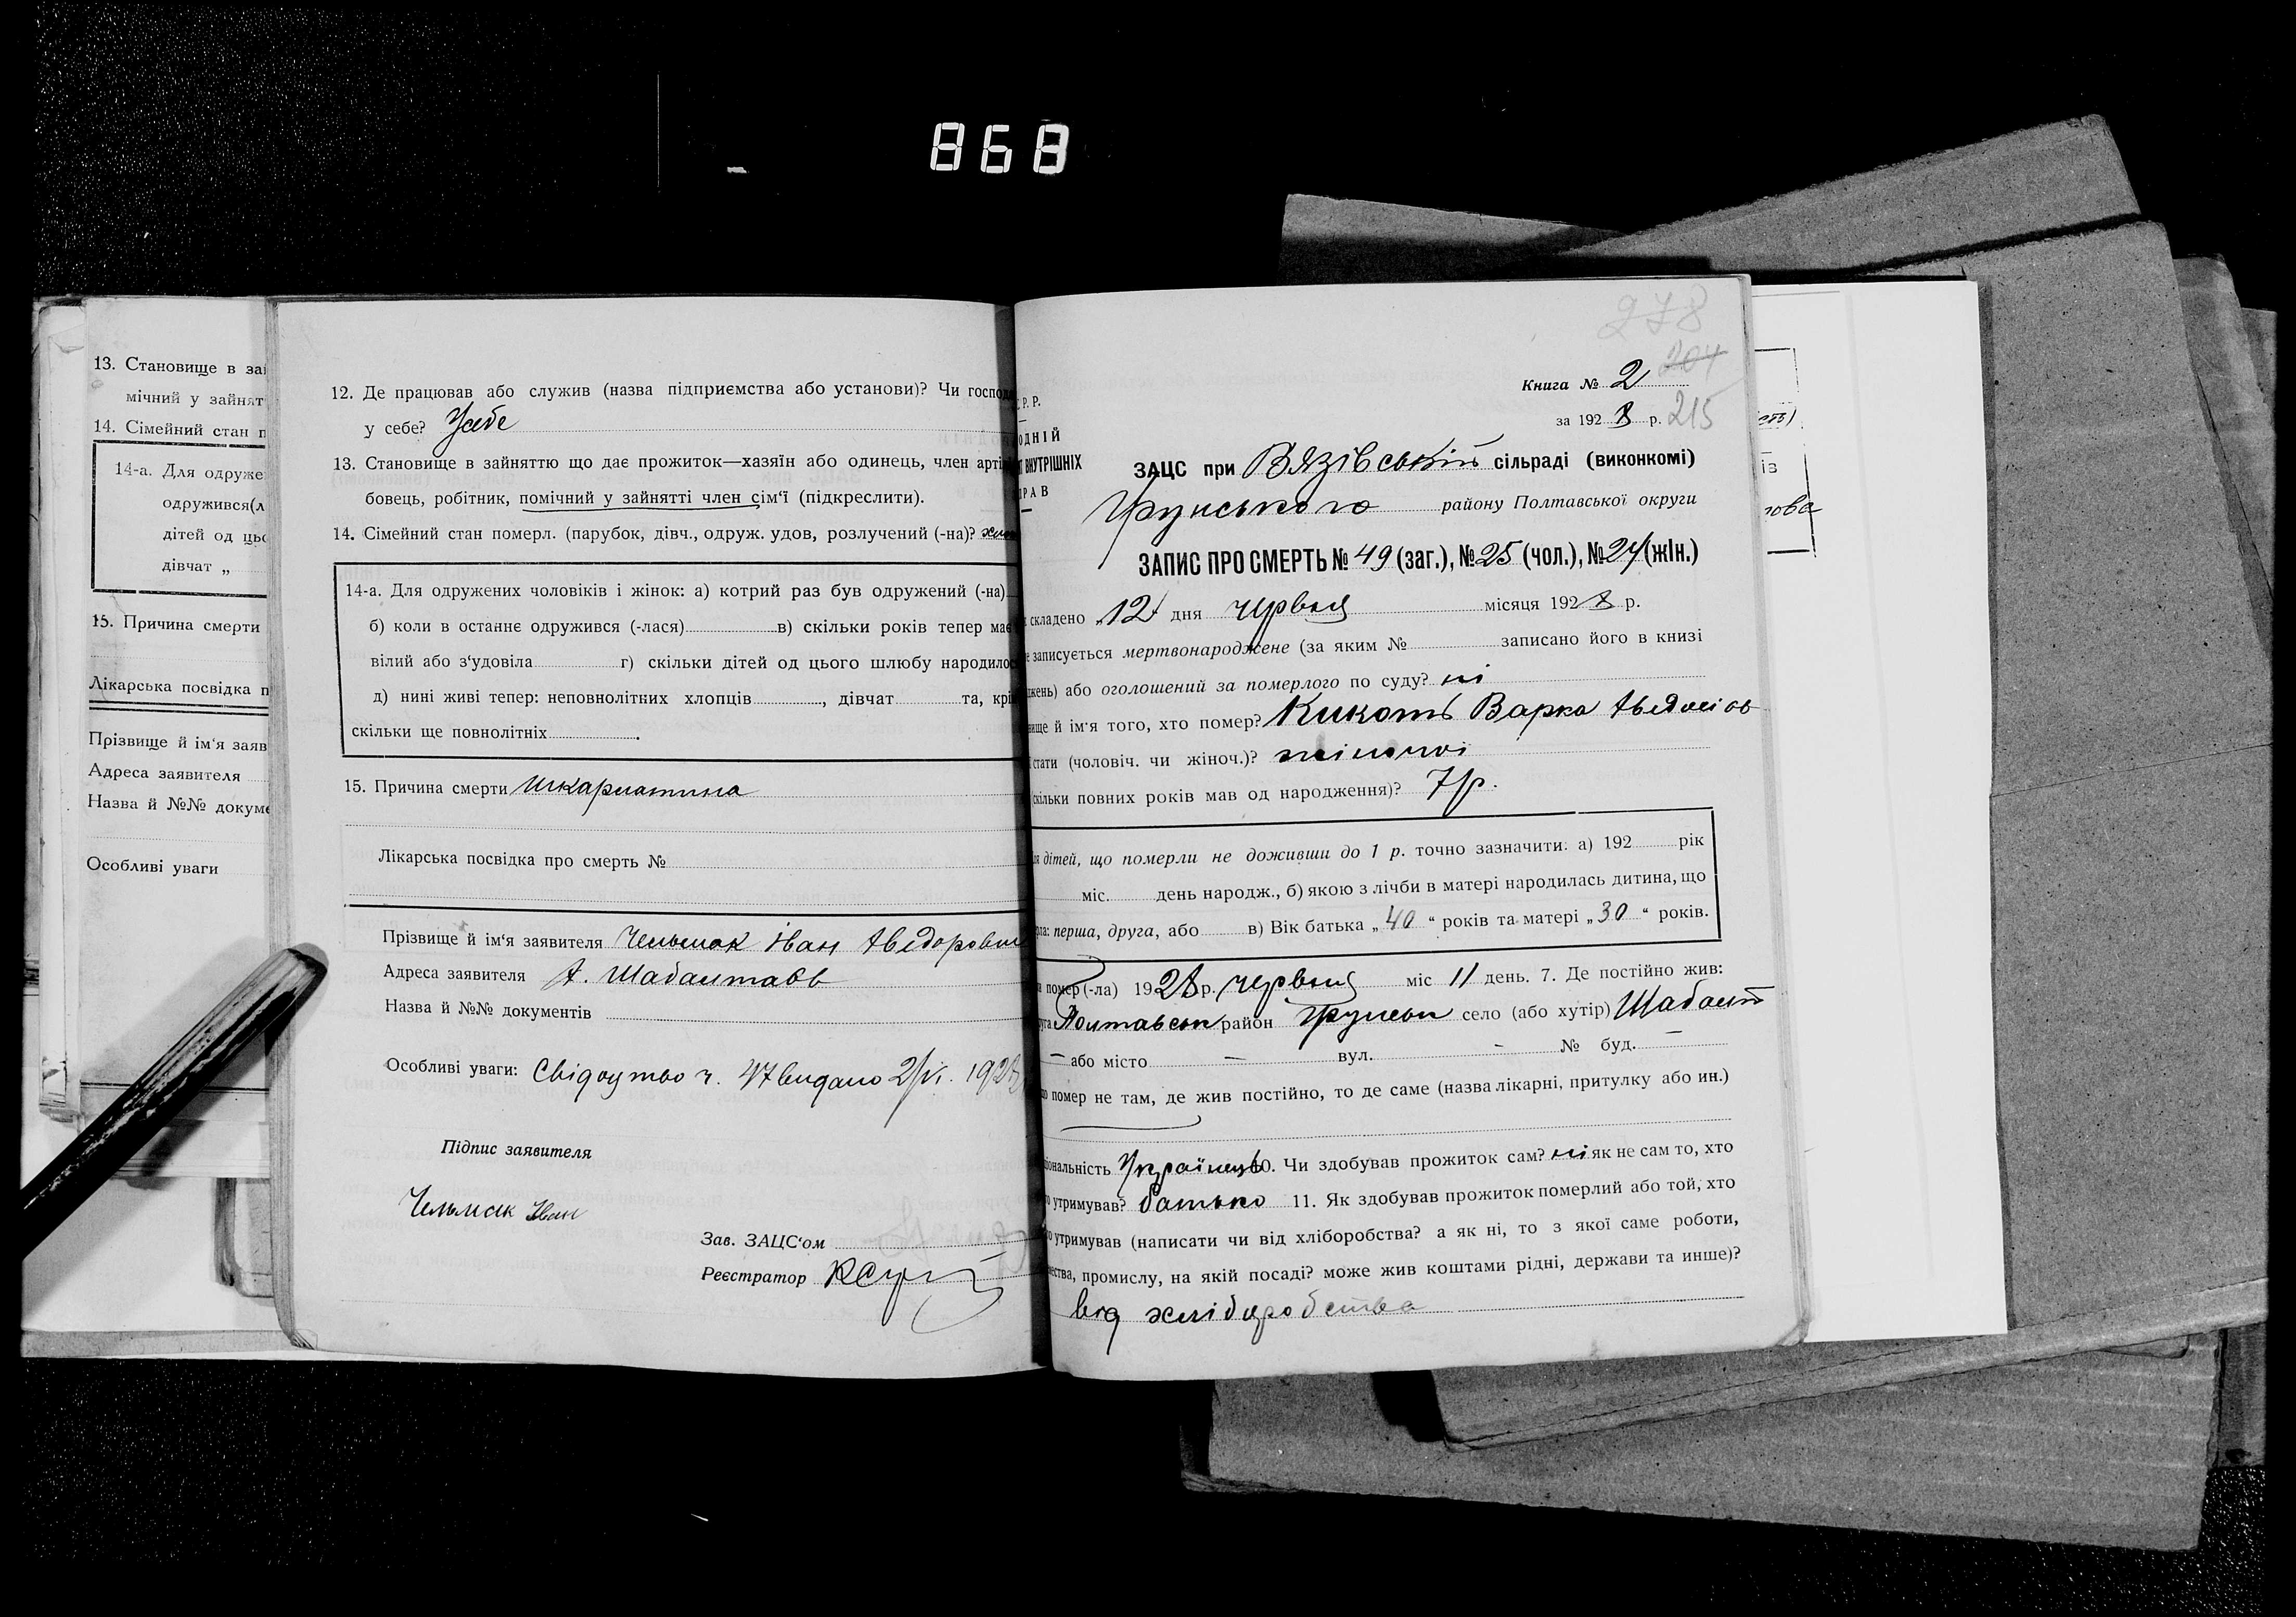 868
13. Становище в за
мічний у зайнят
14. Сімейний стан п
14-а. Для одруже
одружився(л
дітей од ць
дівчат „
15. Причина смерти
Лікарська посвідка п
Прізвище й ім'я заяв
Адреса заявителя
Назва й №№ докуме
Особливі уваги
12. Де працював або служив (назва підприємства або установи)? Чи господ
у себе? У себе
13. Становище в зайняттю що дає прожиток—хазяїн або одинець, член арті
бовець, робітник, помічний у зайнятті член сім'ї (підкреслити).
14. Сімейний стан померл. (парубок, дівч., одруж. удов, розлучений (-на)?
14-а. Для одружених чоловіків і жінок: а) котрий раз був одружений (-на)
б) коли в останнє одружився (-лася) в) скільки років тепер має
вілий або з'удовіла г) скільки дітей од цього шлюбу народилос
д) нині живі тепер: неповнолітних хлопців, дівчат та, крі
скільки ще повнолітніх.
15. Причина смерти шкарлатина
Лікарська посвідка про смерть №
Прізвище й ім'я заявителя Чельмак Іван
Адреса заявителя
Назва й №№ документів
Особливі уваги: Свідоцтво ч. 47 видано
Підпис заявителя
Чельмак Іван
Зав. ЗАЦС'ом
Реєстратор
278
204
Книга № 2
215
за 1928 р.
Р. Р.
ОДНІЙ
ВНУТРІШНІХ
РАВ
ЗАЦС при Вязівській сільраді (виконкомі)
Грунського району Полтавської округи
ЗАПИС ПРО СМЕРТЬ № 49 (заг.), № 25 (чол.), № 24 (жін.)
складено „12 дня червня місяця 1928 р.
записується мертвонароджене (за яким № записано його в книзі
жень) або оголошений за померлого по суду? ні
вище й ім'я того, хто помер? Кикоть Варка
стати (чоловіч. чи жіноч.)? жіночої
скільки повних років мав од народження)? 7 р.
дітей, що померли не доживши до 1 р. точно зазначити: а) 192 рік
міс. день народж., б) якою з лічби в матері народилась дитина, що
ла: перша, друга, або в) Вік батька „ 40 “ років та матері „ 30 “ років.
помер (-ла) 1928 р. червня міс 11 день. 7. Де постійно жив:
Полтавськ район Грунськ село (або хутір) Шабалт
— або місто — вул. - № буд. —
помер не там, де жив постійно, то де саме (назва лікарні, притулку або ин.)
ональність Українець 10. Чи здобував прожиток сам? ні як не сам то, хто
утримував? батько 11. Як здобував прожиток померлий або той, хто
утримував (написати чи від хліборобства? а як ні, то з якої саме роботи,
ества, промислу, на якій посаді? може жив коштами рідні, держави та инше)?
від хліборобства